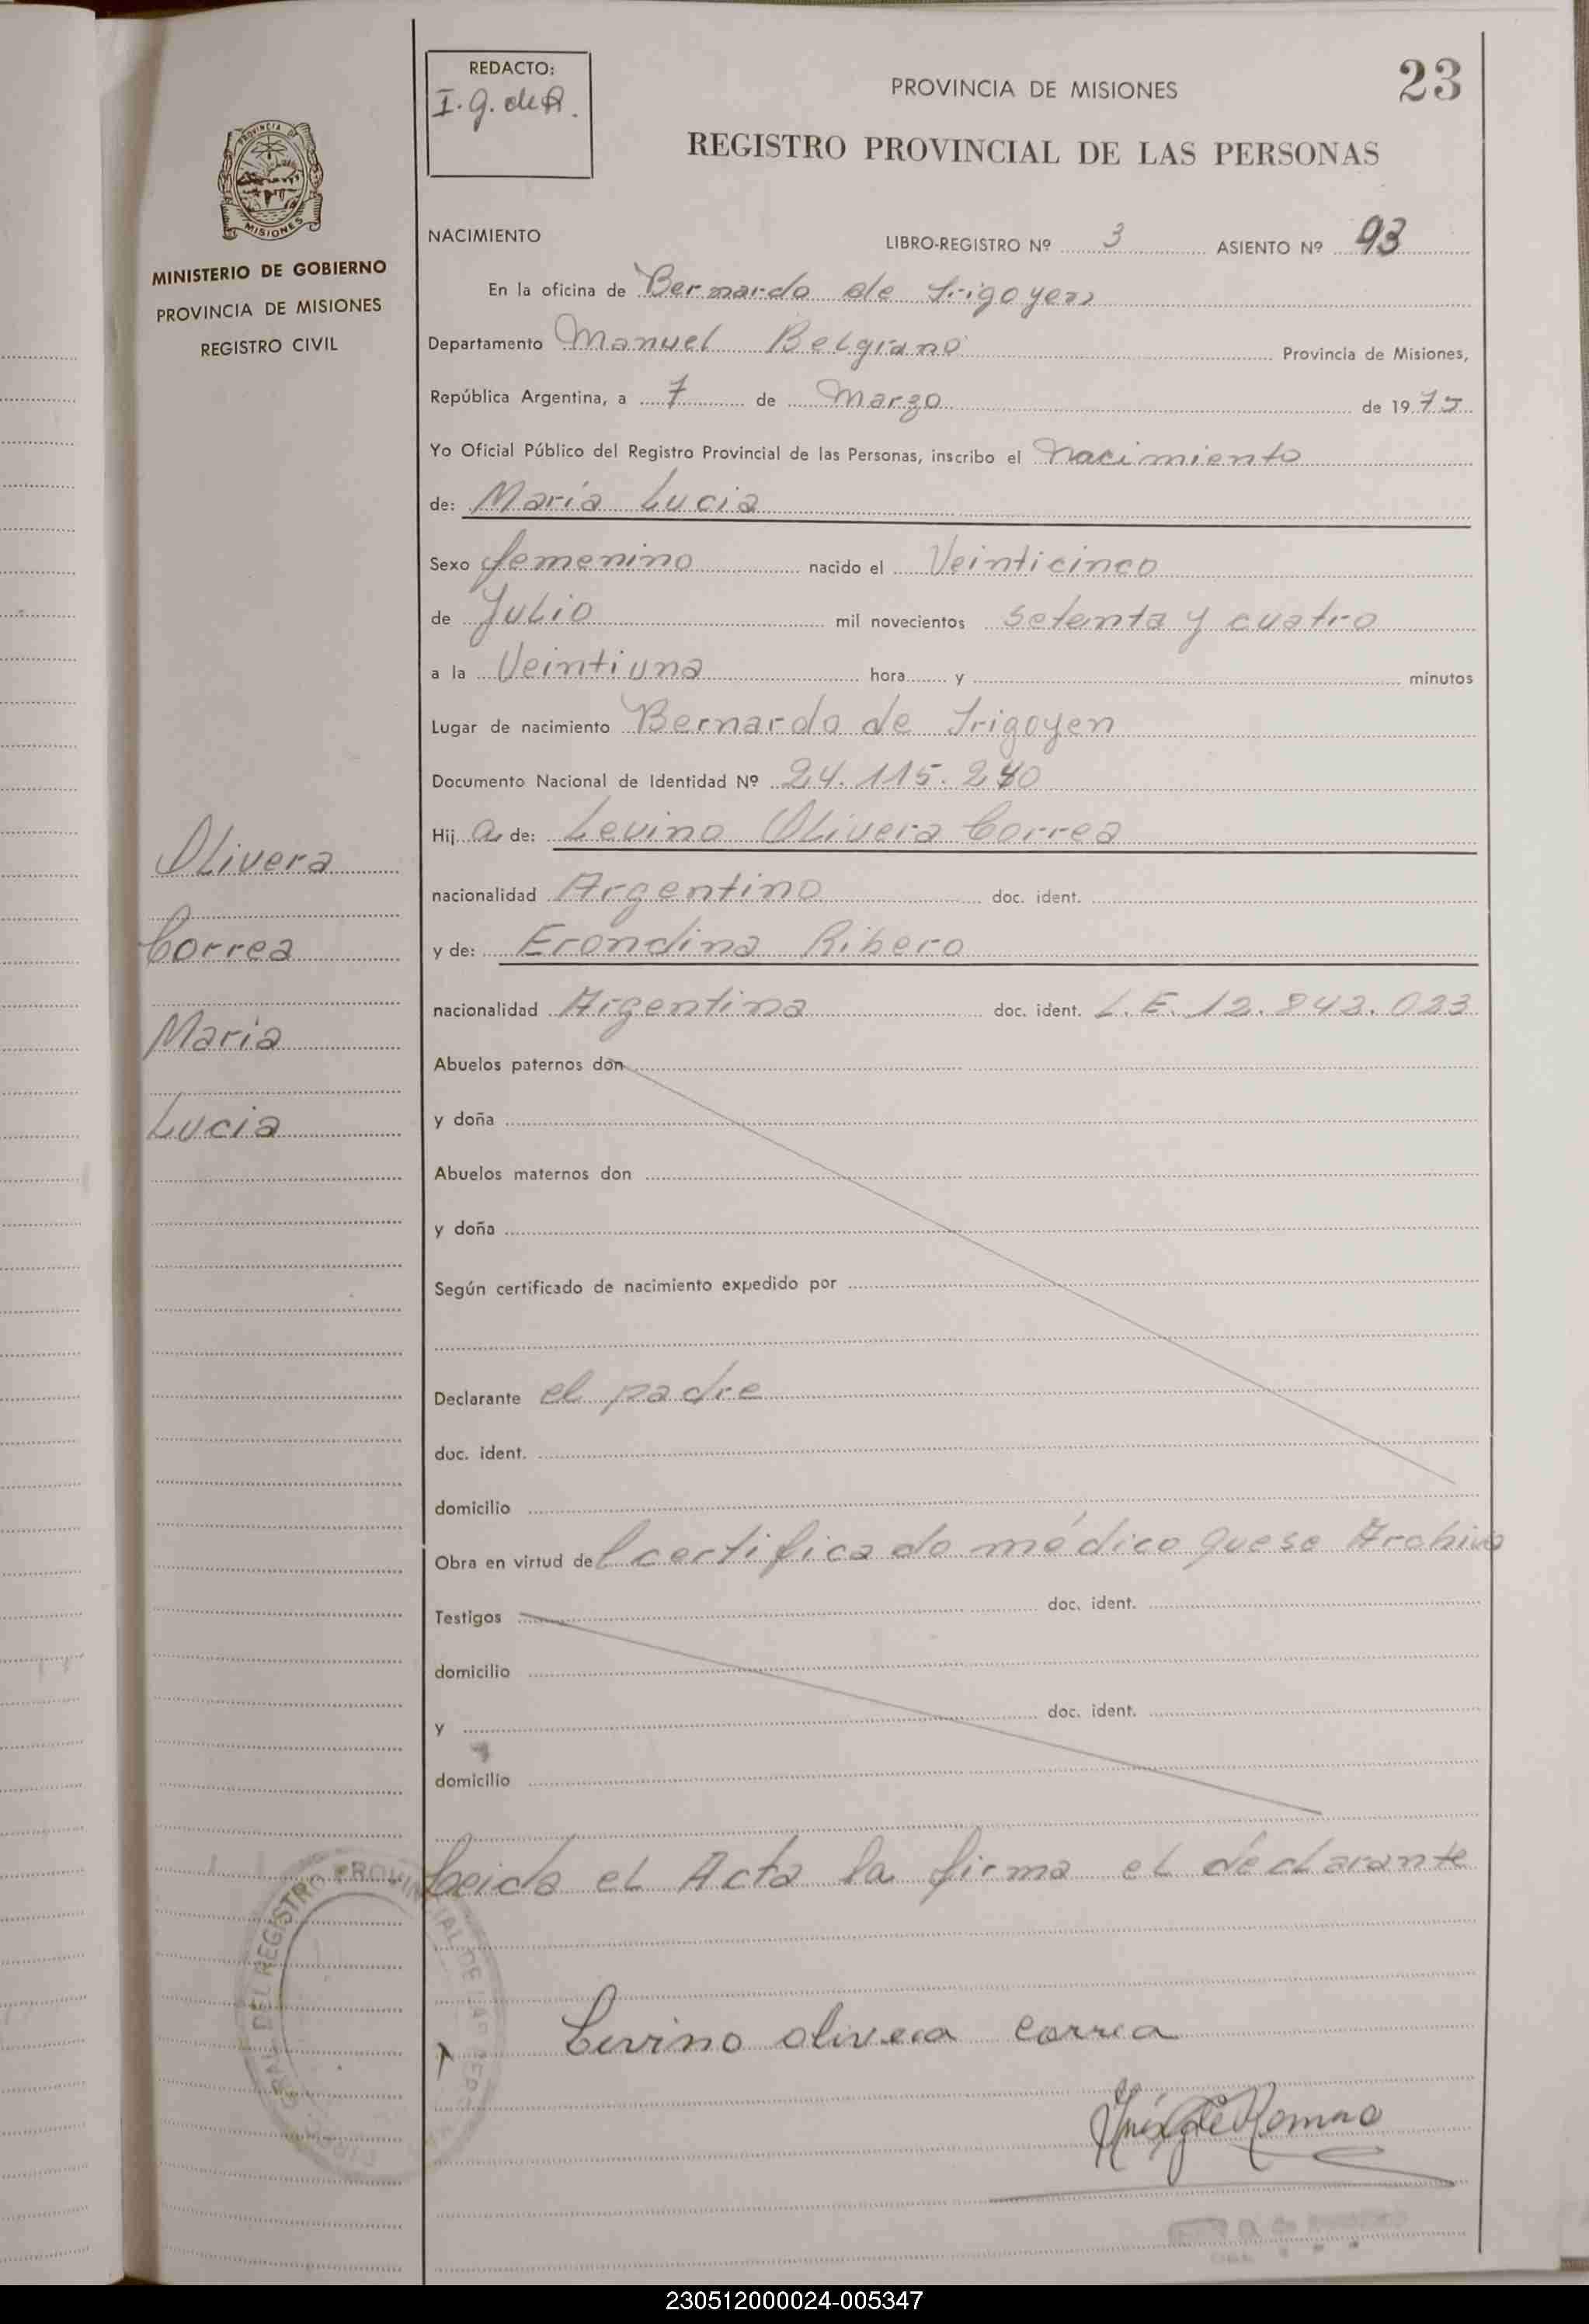 REDACTO:
I. G. de R.
PROVINCIA DE MISIONES
23
REGISTRO PROVINCIAL DE LAS PERSONAS
PROVINCIA DE
MISIONES
MINISTERIO DE GOBIERNO
PROVINCIA DE MISIONES
REGISTRO CIVIL
NACIMIENTO LIBRO-REGISTRO Nº 3 ASIENTO Nº 93
En la oficina de Bernardo de Irigoyen
Departamento Manuel Belgrano Provincia de Misiones,
República Argentina, a 7 de Marzo de 1975
Yo Oficial Público del Registro Provincial de las Personas, inscribo el nacimiento
de: María Lucia
Sexo femenino nacido el Veinticinco
de Julio mil novecientos setenta y cuatro
a la Veintiuna hora y minutos
Lugar de nacimiento Bernardo de Irigoyen
Documento Nacional de Identidad Nº 24.115.280
Hij a de: Levino Olivera Correa
nacionalidad Argentino doc. ident.
y de: Erondina Ribero
nacionalidad Argentina doc. ident. L.E. 12.843.023
Abuelos paternos don
y doña
Abuelos maternos don
y doña
Según certificado de nacimiento expedido por
Declarante el padre
doc. ident.
domicilio
Obra en virtud del certificado médico que se Archiva
Testigos doc. ident.
domicilio
y doc. ident.
domicilio
Leida el Acta la firma el declarante
Levino olivera correa
Olivera
Correa
Maria
Lucia
DEL REGISTRO PROVINCIAL DE LAS
230512000024-005347